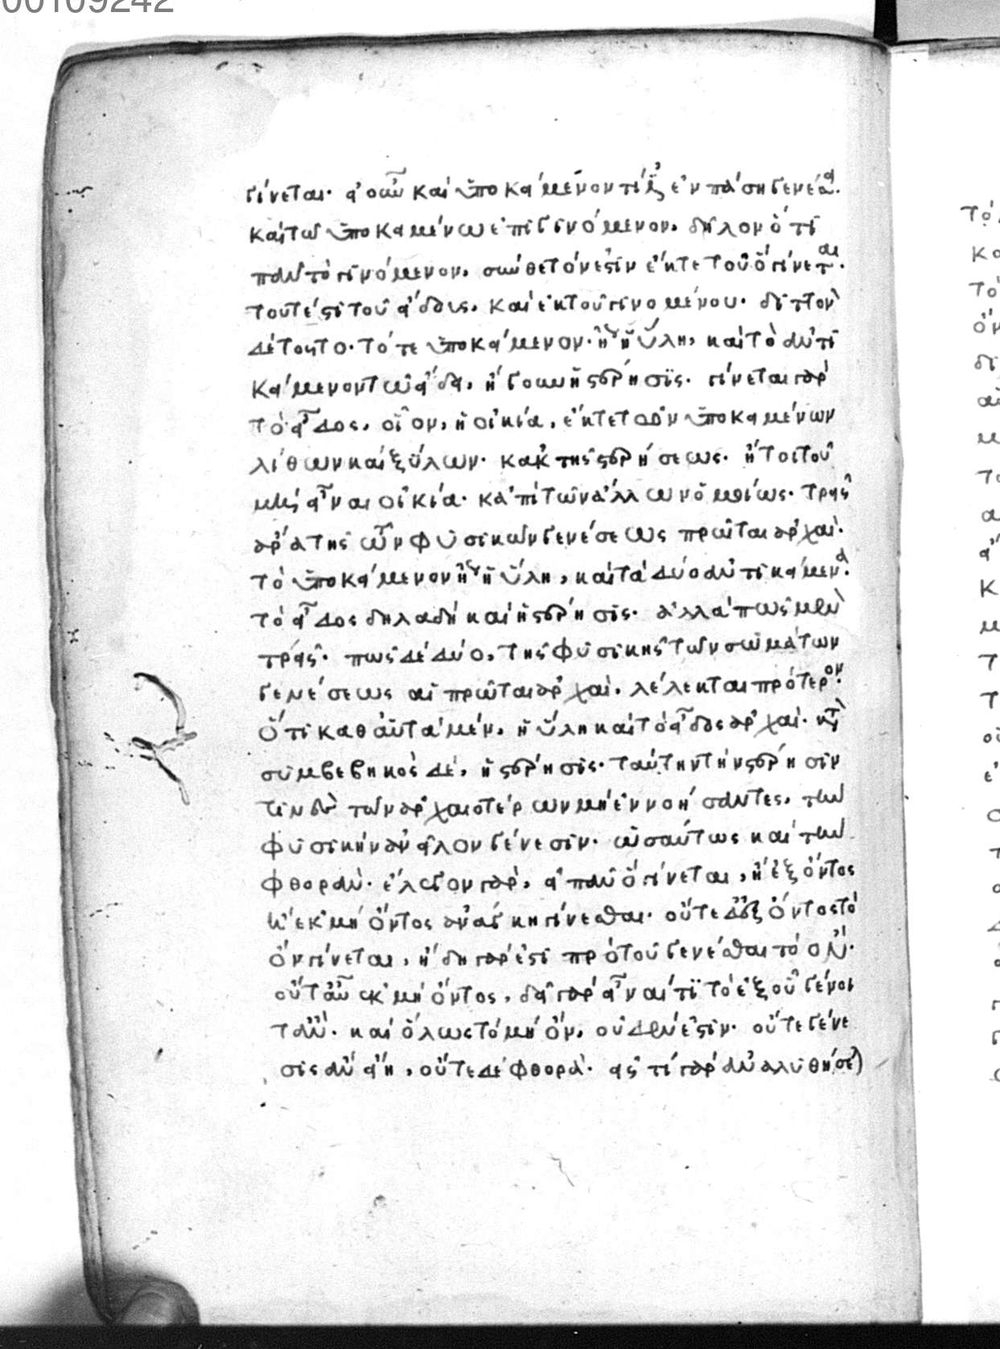 00109242
γίνεται· εἰ οὖν καὶ ὑποκείμενον τί ἐξ ἐν πάση γενέσει.
καὶ τῶ ὑποκειμένω ἐπιγινόμενον. δῆλον ὅτι
πᾶν τὸ γινόμενον, σύνθετόν ἐστιν ἔκ τε τοῦ ὃ γίνεται.
τουτέστι τοῦ εἴδους. καὶ ἐκ τοῦ γινομένου· διττὸν
δὲ τοῦτο· τό τε ὑποκείμενον· ἤγουν ἡ ὕλη, καὶ τὸ ἀντι
κείμενον τῶ εἴδει, ἤγουν ἡ στέρησις· γίνεται γὰρ
τὸ εἶδος, οἷον, ἡ οἰκία, ἔκ τε τῶν ὑποκειμένων
λίθων καὶ ξύλων· κἀκ τῆς στερήσεως· ἤτοι τοῦ
μὴ εἶναι οἰκία· κἀπὶ τῶν ἄλλων ὁμοίως· τρεῖς
ἄρα τῆς οὖν φυσικῶν γενέσεως πρῶται ἀρχαί·
τὸ ὑποκείμενον ἤγουν ἡ ὕλη, καὶ τὰ δύο ἀντικείμενα·
τὸ εἶδος δηλαδὴ καὶ ἡ στέρησις· ἀλλὰ πῶς μὲν
τρεῖς· πῶς δὲ δύο, τῆς φυσικῆς τῶν σωμάτων
γενέσεως αἱ πρῶται ἀρχαί, λέλεκται πρότερον·
ὅτι καθ αὑτὰ μέν, ἡ ὕλη καὶ τὸ εἶδος ἀρχαί· κατὰ
συμβεβηκὸς δέ, ἡ στέρησις· ταύτην τὴν στέρησιν
τινὲς τῶν ἀρχαιοτέρων μὴ ἐννοήσαντες, τὴν
φυσικὴν ἀνεῖλον γένεσιν· ὡσαύτως καὶ τὴν
φθοράν· ἔλεγον γάρ, εἰ πᾶν ὃ γίνεται, ἢ ἐξ ὄντος
ἢ ἐκ μὴ ὄντος ἀνάγκη γίνεσθαι· οὔτε δὲ ἐξ ὄντος τὸ
ὂν γίνεται, ἤδη γάρ ἐστι πρὸ τοῦ γενέσθαι τὸ ὄν·
οὔτ' οὖν ἐκ μὴ ὄντος, δεῖ γὰρ εἶναι τί τὸ ἐξ οὗ γένοι
τ' ἄν· καὶ ὅλως τὸ μὴ ὄν, οὐδέν ἐστιν· οὔτε γένε
σις ἂν εἴη, οὔτε δὲ φθορά· εἰς τί γὰρ ἀναλυθήσε)